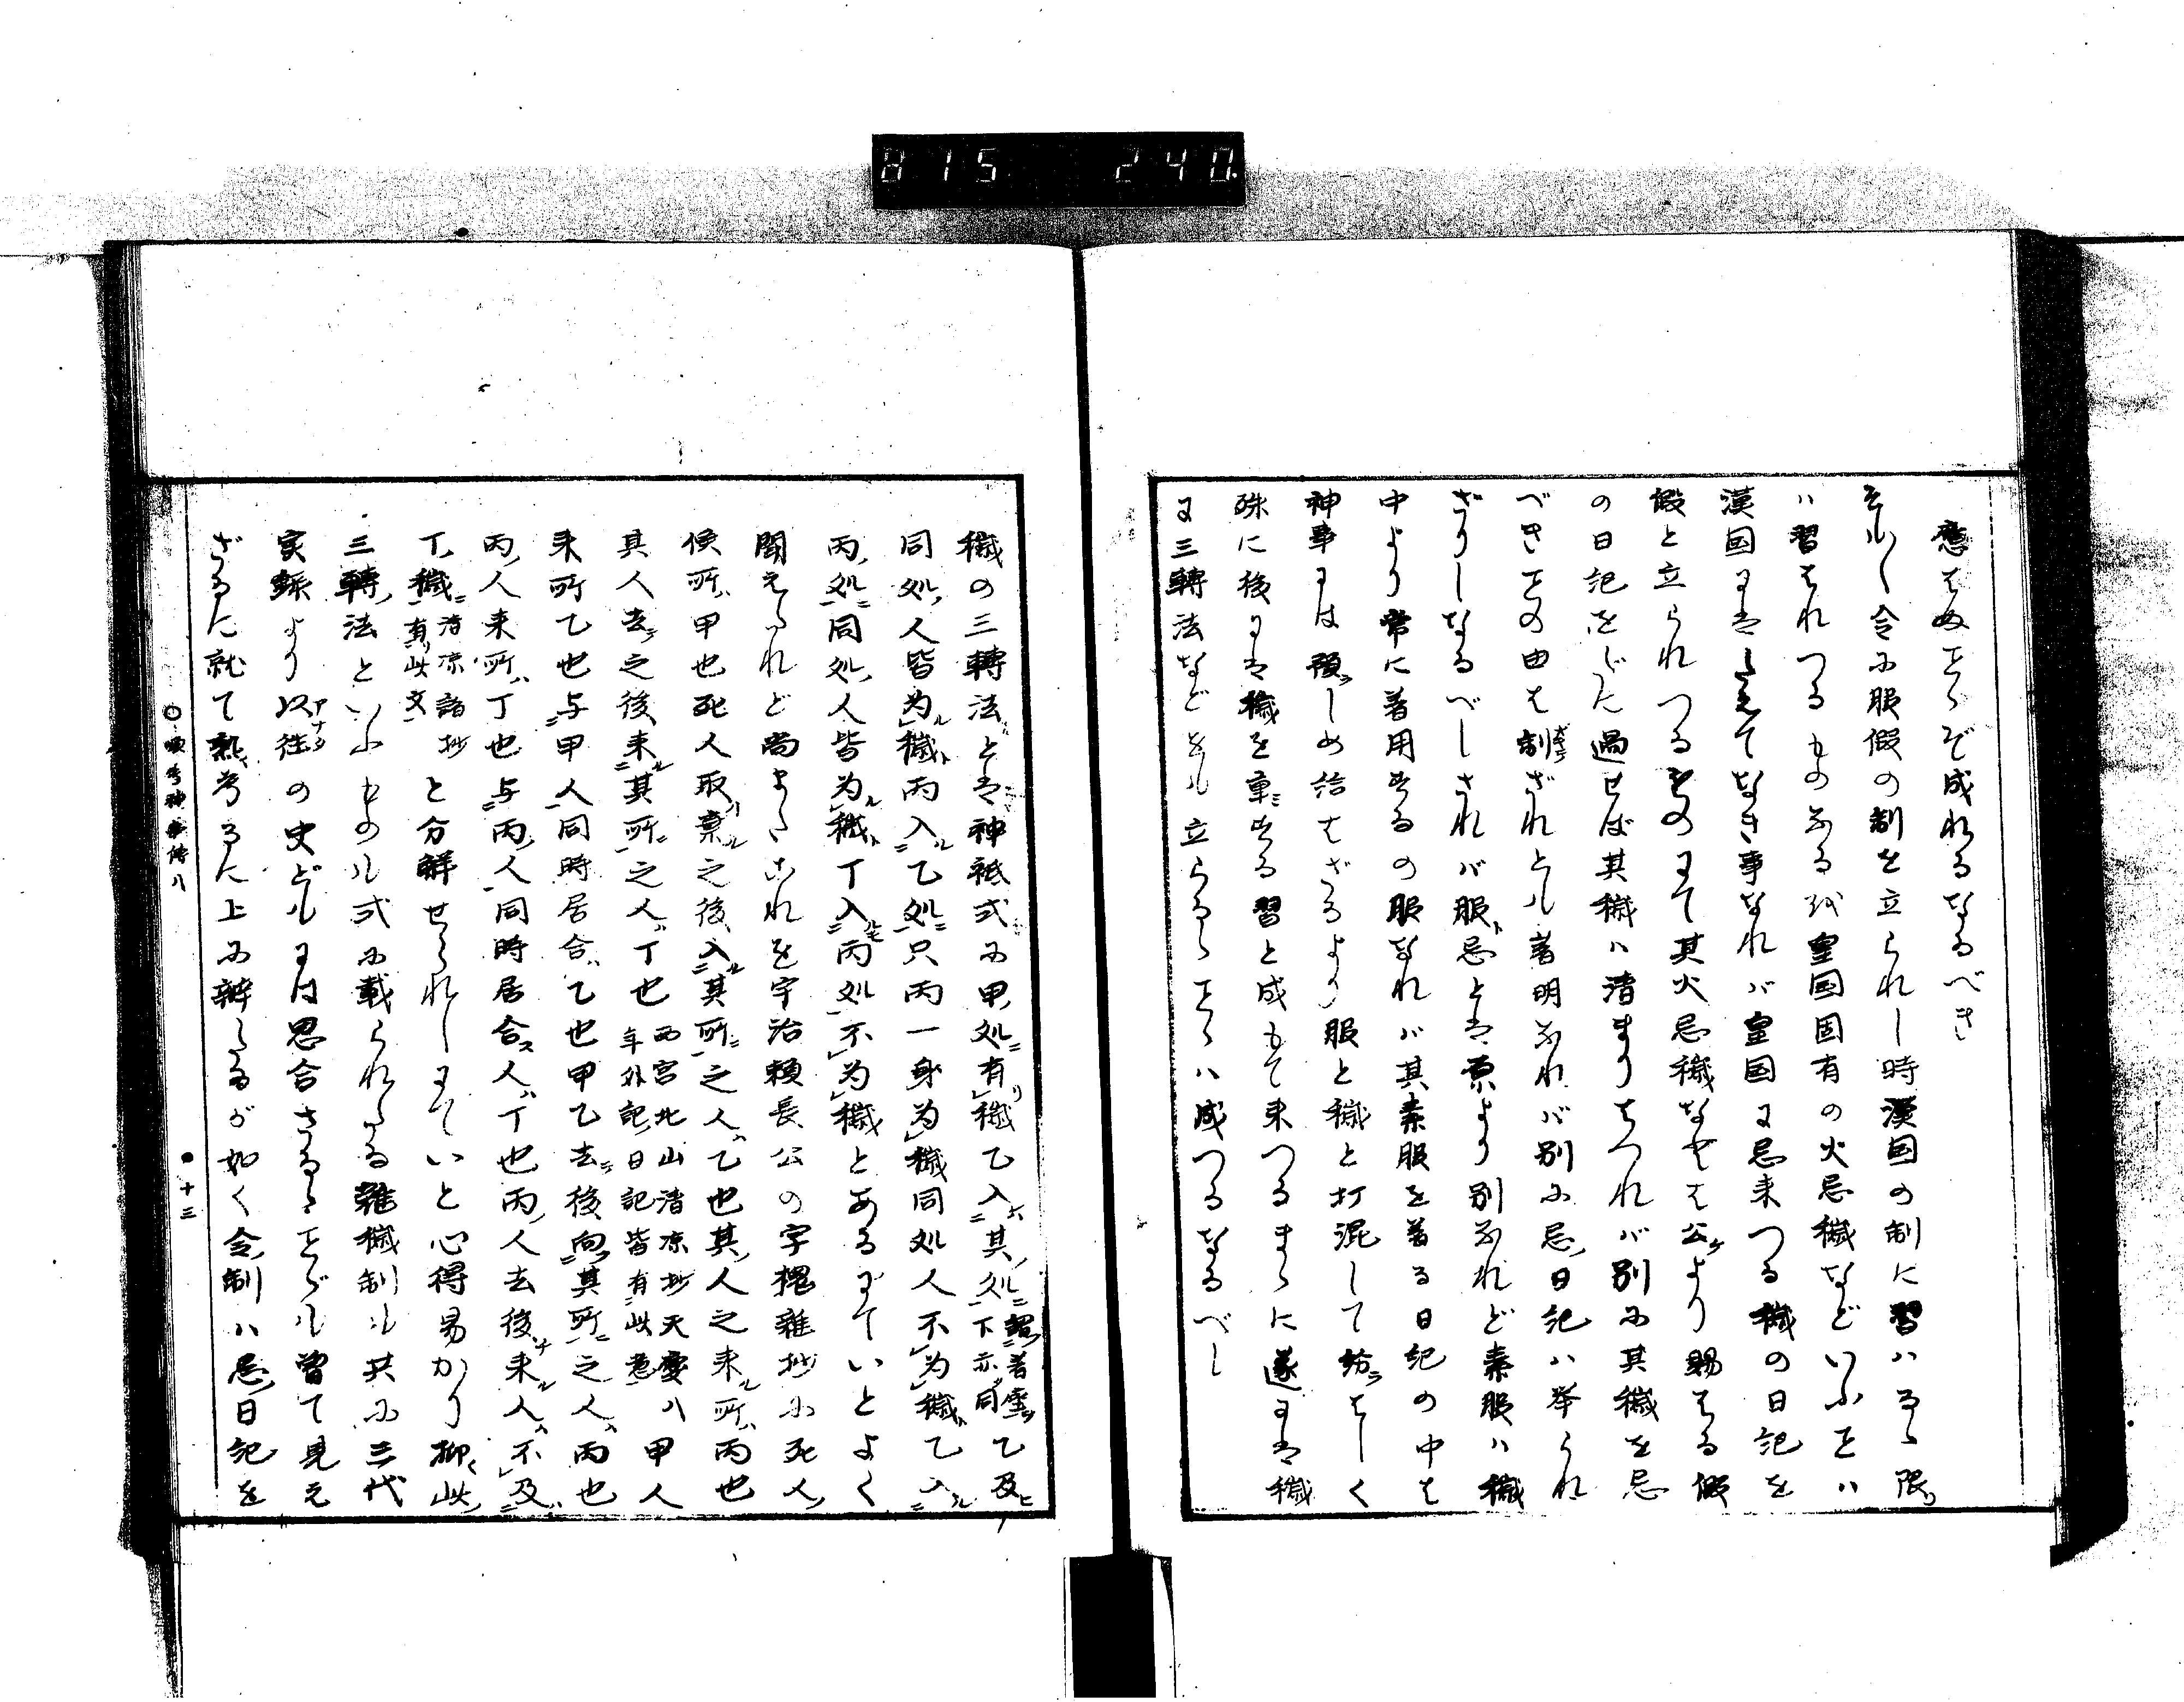 815 240
應はぬことゝぞ成れるなるべき
そも〳〵令に服假の制を立られし時漢国の制に習ハるゝ限り
ハ習はれつるものなる哉皇国固有の火忌穢などいふことハ
漢国にはたえてなき事なれバ皇国に忌来つる穢の日記を
假と立られつるものにて其火忌穢なせそ公より賜はる假
の日記をだに過せば其穢ハ清まりはつれバ別に其穢を忌
べきことの由は制ざれとも著明なれバ別に忌日記ハ挙られ
ざりしなるべしされバ服忌とは原より別なれど素服ハ穢
中より常に著用せるの服なれバ其素服を著る日記の中は
神事には預しめ給はざるより服と穢と打混して紛はしく
殊に後には穢を重せる習と成もて来つるまゝに遂には穢
に三轉法などをも立らるゝことゝハ成つるなるべし
穢の三轉法とは神祇式に甲処有穢乙入其処謂著座下亦同乙及
同処人皆為穢丙入乙処只丙一身為穢同処人不為穢乙入
丙処同処人皆為穢丁入丙処不為穢とあるにていとよく
聞えたれど尚またこれを宇治頼長公の宇槐雑抄に死人
候所甲也死人取棄之後入其所之人乙也其人之来所丙也
其人去之後来其所之人丁也西宮北山清凉抄天慶八年外記日記皆有此意甲人
来所乙也与甲人同時居合乙也甲乙去後向其所之人丙也
丙人来所丁也与丙人同時居合人丁也丙人去後来人不及
丁穢清凉諸抄有此文と分解せられしにていと心得易かり抑此
三轉法といふものも式に載られたる雑穢制も共に三代
実録より以往の史どもには思合さるゝことども曽て見え
ざるに就て熟考るに上に辨たるが如く令制ハ忌日記を
十三